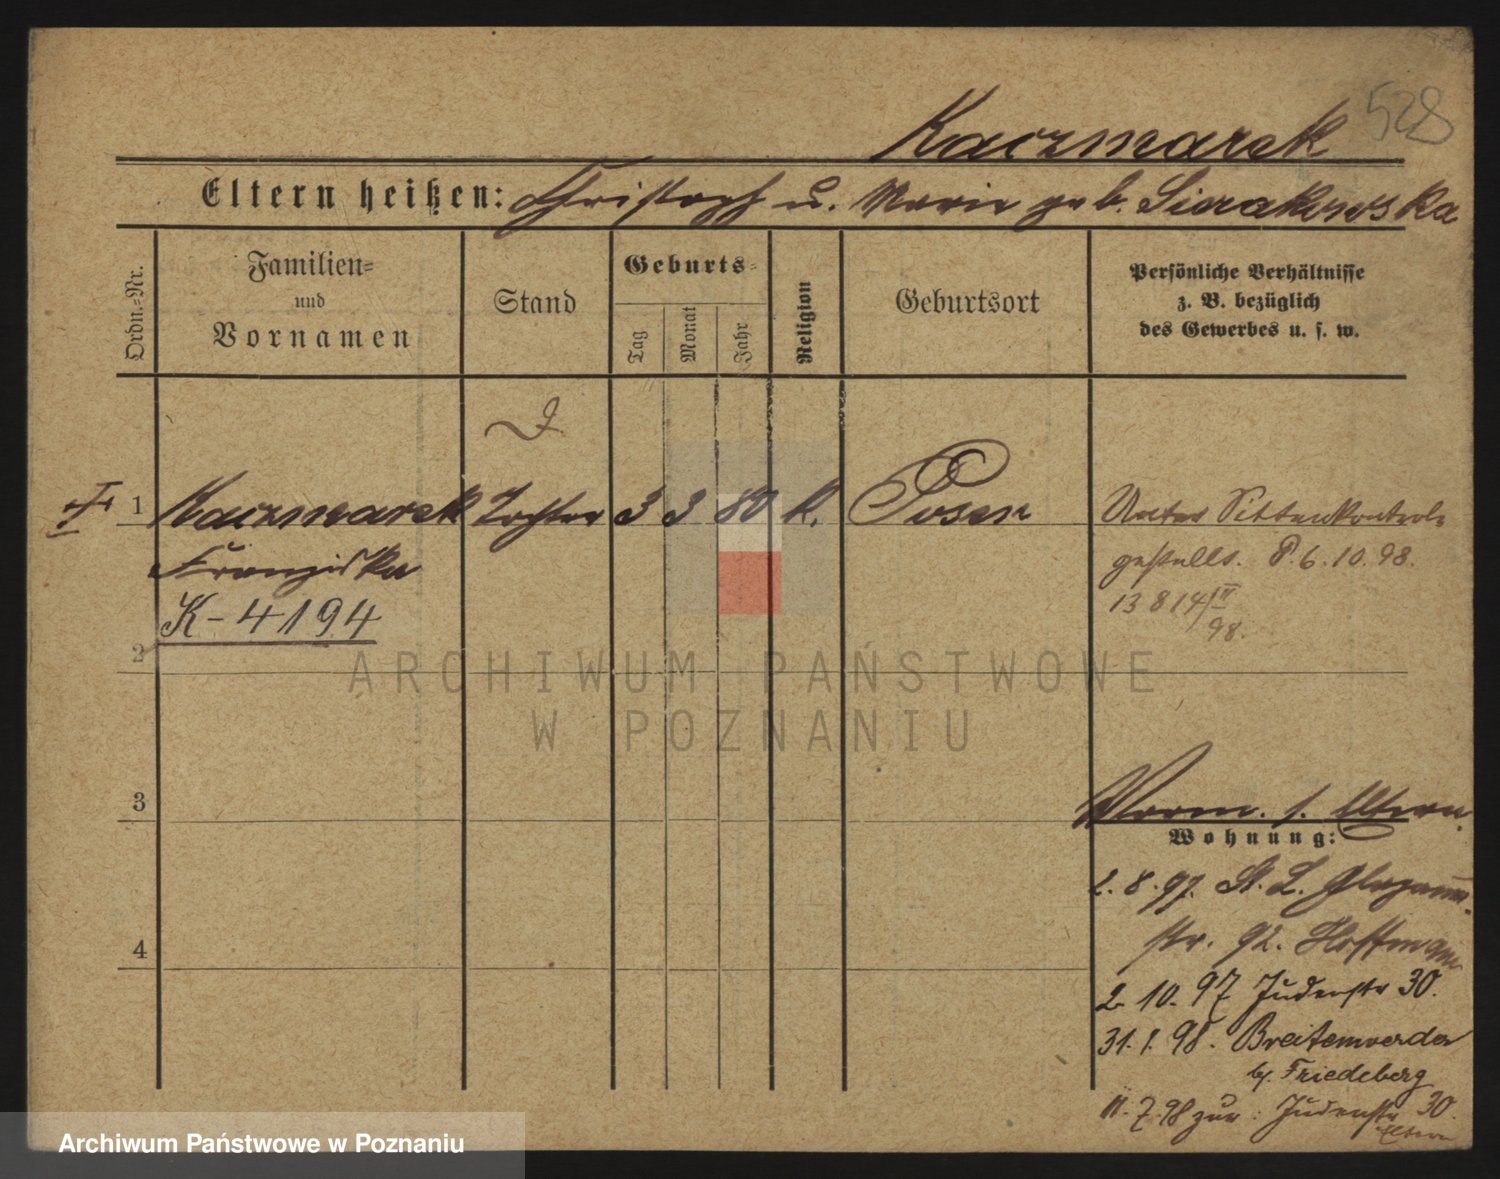 528
Kaczmarek
Eltern heißen: Christoph u. Marie geb. Sierakowska
Ordn.=Nr.
Familien=
und
Vornamen
Stand
Geburts=
Tag
Monat
Jahr
Religion
Geburtsort
Persönliche Verhältnisse
z. B. bezüglich
des Gewerbes u. s. w.
1 Kaczmarek Tochter 3 3 80 k. Posen
Franziska
K-4194
Unter Sittenkontrole
gestellt. P. 6.10.98.
13814/IV
98.
2
ARCHIWUM PAŃSTWOWE
W POZNANIU
3
Vorm. s. Eltern.
Wohnung:
2.8.97. St. L.
str. 92. Hoffmann
4
2.10.97 Judenstr 30.
31.1.98. Breitenwerder
b/. Friedeberg
11.7.98 zur: Judenstr 30.
Eltern
Archiwum Państwowe w Poznaniu